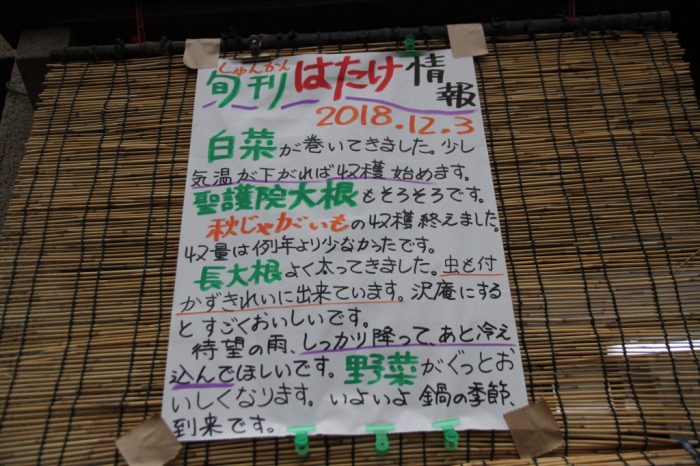 しゅんかん
旬刊 はたけ情報
2018.12.3
白菜が巻いてきました。少し
気温が下がれば収穫始めます。
聖護院大根もそろそろです。
秋じゃがいもの収穫終えました。
収量は例年より少なかったです。
長大根よく太ってきました。虫も付
かずきれいに出来ています。沢庵にする
とすごくおいしいです。
待望の雨、しっかり降って、あと冷え
込んでほしいです。野菜がぐっとお
いしくなります。いよいよ鍋の季節、
到来です。